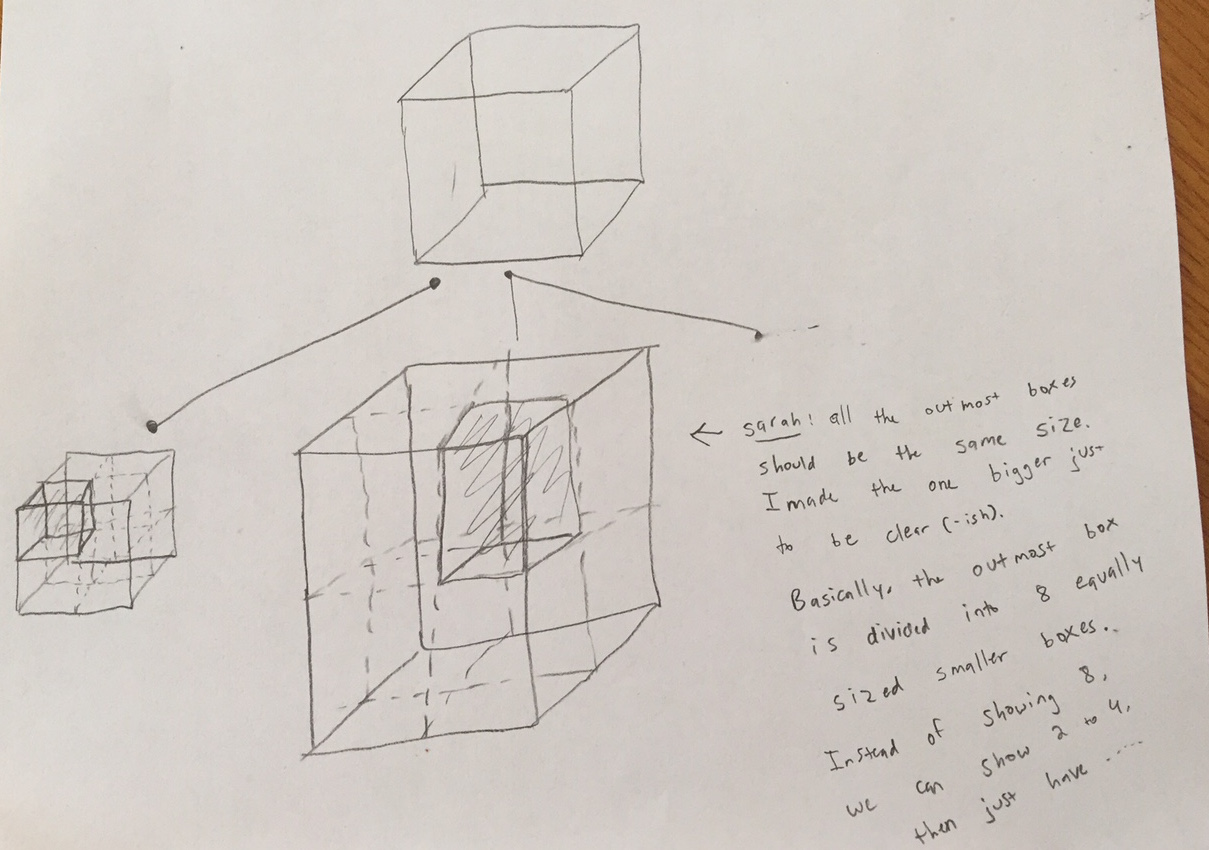 ← sarah: all the outmost boxes
should be the same size.
I made the one bigger just
to be clear (-ish).
Basically, the outmost box
is divided into 8 equally
sized smaller boxes.
Instead of showing 8,
we can show 2 to 4,
then just have .....